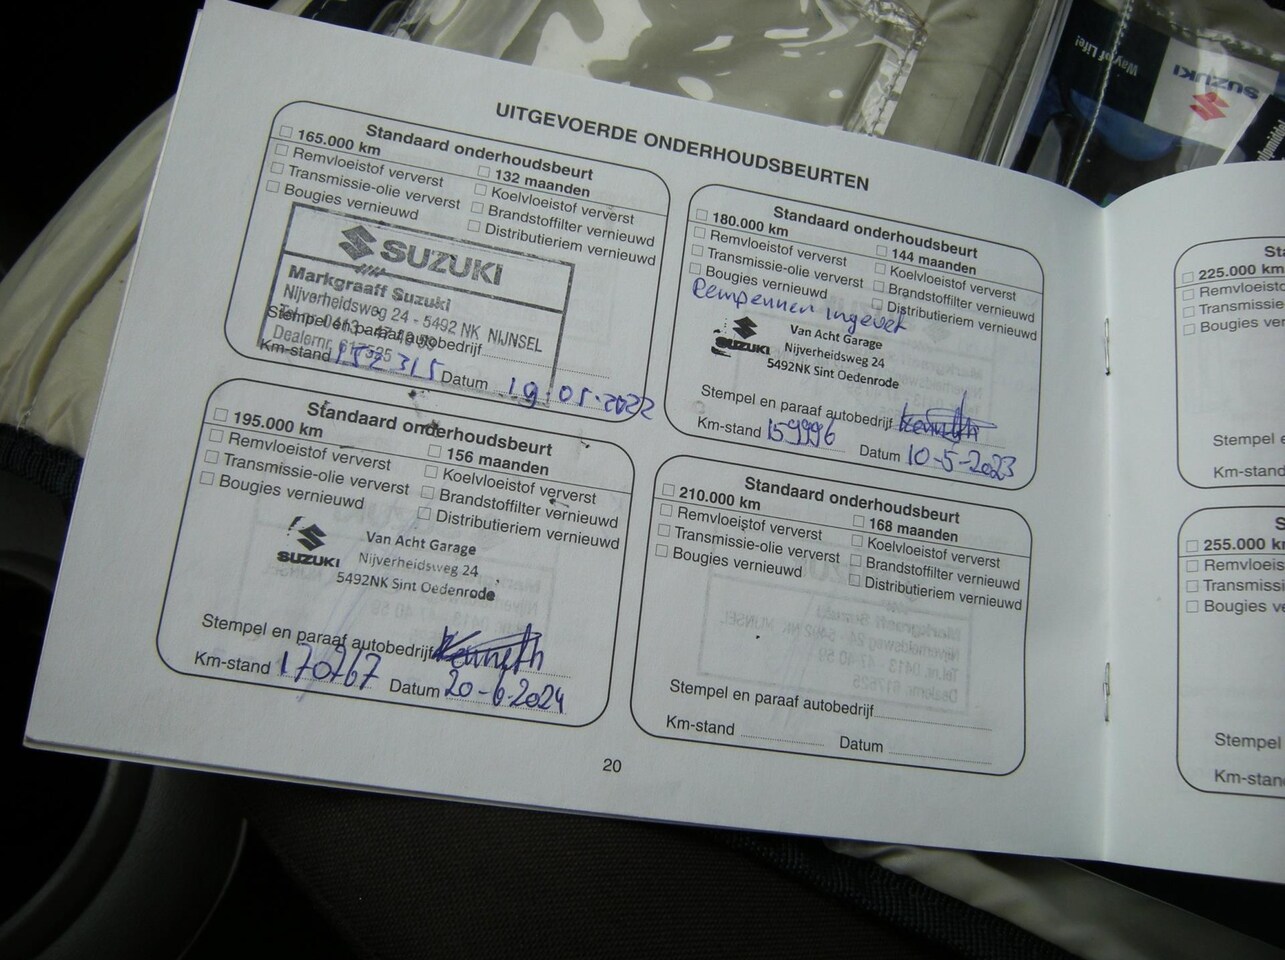 UITGEVOERDE ONDERHOUDSBEURTEN
Standaard onderhoudsbeurt
165.000 km
132 maanden
Remvloeistof ververst
Koelvloeistof ververst
Transmissie-olie ververst
Brandstoffilter vernieuwd
Bougies vernieuwd
Distributieriem vernieuwd
SUZUKI
Markgraaff Suzuki
Nijverheidsweg 24 - 5492 NK NIJNSEL
Stempel en paraaf autobedrijf
Dealernr.
Km-stand 152315 Datum 19-05-2022
Standaard onderhoudsbeurt
180.000 km
144 maanden
Remvloeistof ververst
Koelvloeistof ververst
Transmissie-olie ververst
Brandstoffilter vernieuwd
Bougies vernieuwd
Distributieriem vernieuwd
Rempennen ingevet
SUZUKI
Van Acht Garage
Nijverheidsweg 24
5492NK Sint Oedenrode
Stempel en paraaf autobedrijf Kenneth
Km-stand 159996 Datum 10-5-2023
Standaard onderhoudsbeurt
195.000 km
156 maanden
Remvloeistof ververst
Koelvloeistof ververst
Transmissie-olie ververst
Brandstoffilter vernieuwd
Bougies vernieuwd
Distributieriem vernieuwd
SUZUKI
Van Acht Garage
Nijverheidsweg 24
5492NK Sint Oedenrode
Stempel en paraaf autobedrijf Kenneth
Km-stand 170767 Datum 20-6-2024
Standaard onderhoudsbeurt
210.000 km
168 maanden
Remvloeistof ververst
Koelvloeistof ververst
Transmissie-olie ververst
Brandstoffilter vernieuwd
Bougies vernieuwd
Distributieriem vernieuwd
Stempel en paraaf autobedrijf
Km-stand Datum
20
225.000 km
Remvloeisto
Transmissie
Bougies ve
Stempel e
Km-stand
255.000 km
Remvloeis
Transmissi
Bougies ve
Stempel
Km-stan
Way of Life!
SUZUKI